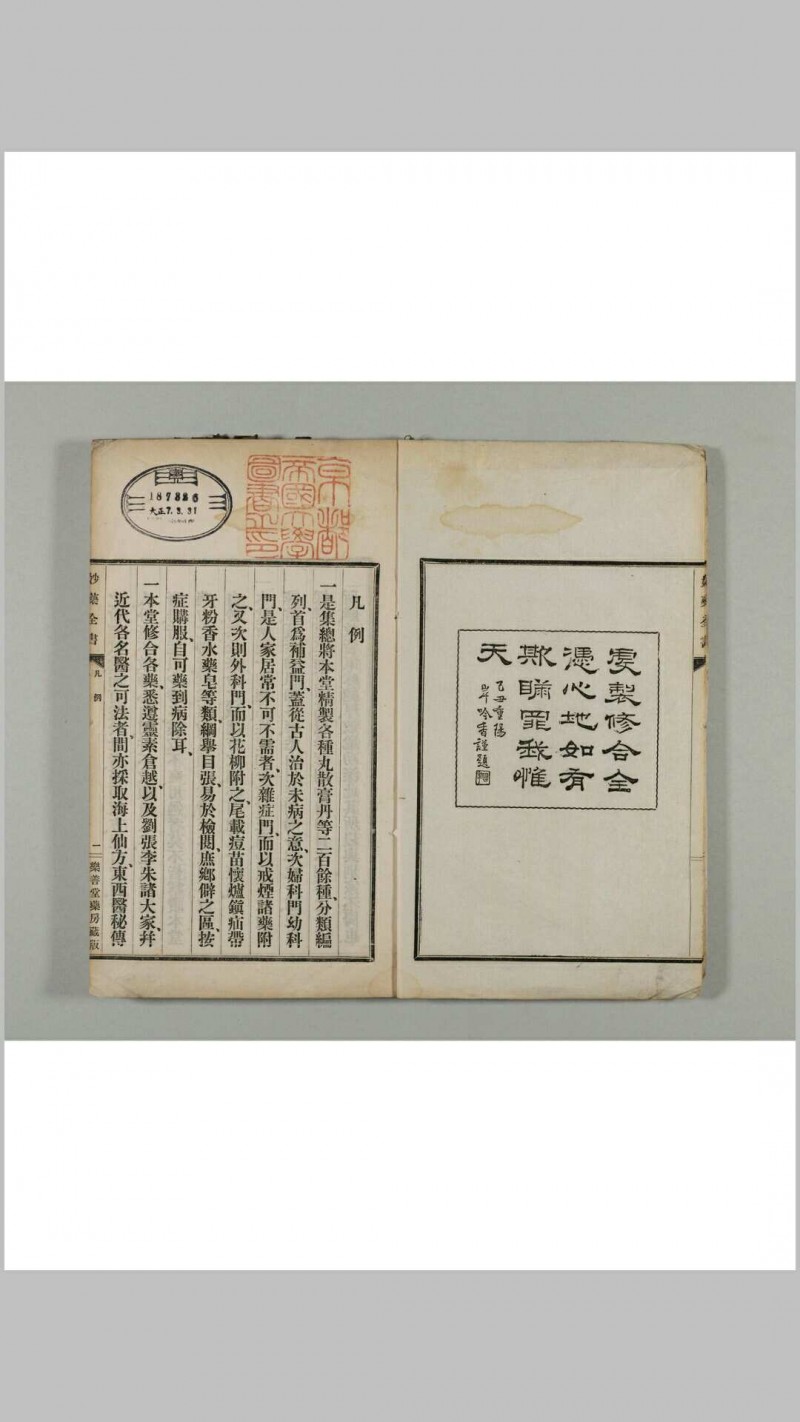 虔製修合全
憑心地如有
欺瞞罪我惟
天
乙丑重陽
吟香謹題
京都
帝國大學
圖書之印
187886
大正7.3.31
凡例
一是集總將本堂精製各種丸散膏丹等二百餘種、分類編
列、首爲補益門、蓋從古人治於未病之意、次婦科門幼科
門、是人家居常不可不需者、次雜症門、而以戒煙諸藥附
之、又次則外科門、而以花柳附之、尾載痘苗懷爐鎭疝帶
牙粉香水藥皂等類、綱舉目張、易於檢閱、庶鄉僻之區、按
症購服、自可藥到病除耳、
一本堂修合各藥、悉遵靈素倉越、以及劉張李朱諸大家、幷
近代各名醫之可法者、間亦採取海上仙方、東西醫秘傳
妙藥全書
凡例
一
樂善堂藥房藏版